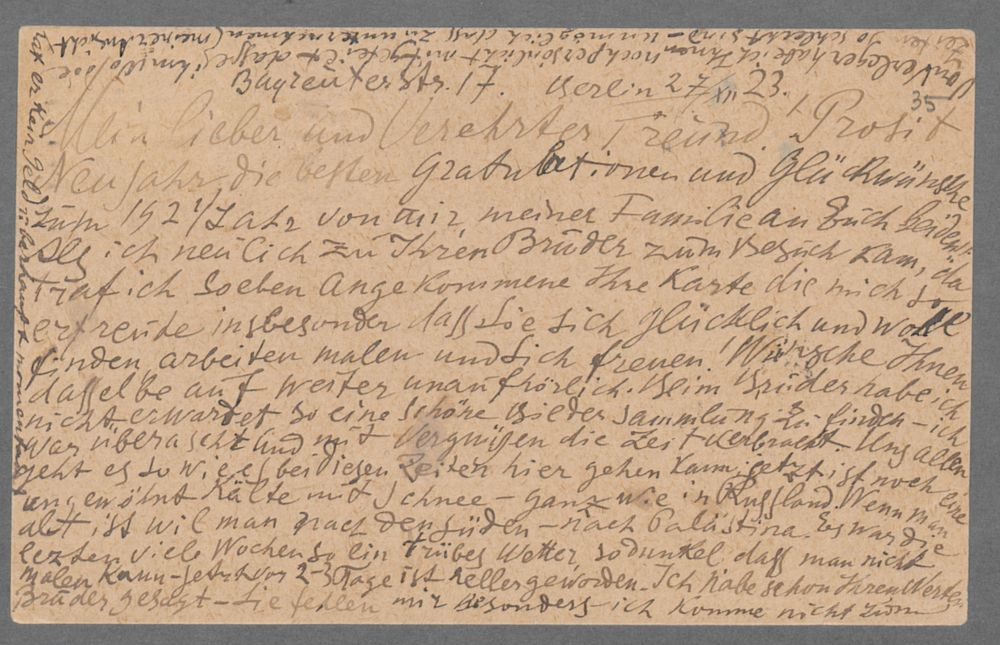 Bayreuter Str. 17. Berlin 27/XII. 23.
35
Mein lieber und Verehrter Freund! Prosit
Neujahr, die besten Gratulationen und Glückwünsche
zum 1924 Jahr von mir, meiner Familie an Euch beiden.
Als ich neulich zu Ihren Bruder zum Besuch kam, da
traf ich soeben Angekommene Ihre Karte die mich so
erfreute insbesonder dass Sie sich glücklich und wohl
finden, arbeiten malen und sich freuen! Wünsche Ihnen
dasselbe auf weiter unaufhörlich. Beim Bruder habe ich
nicht erwartet so eine schöne Bilder sammlung zu finden – ich
war überascht und mit Vergnügen die Zeit verbracht. Uns allen
geht es so wie es bei diesen Zeiten hier gehen kann, jetzt ist noch eine
ungewöhnt Kälte mit Schnee – ganz wie in Russland. Wenn man
alt ist wil man nach den Süden – nach Palästina. Es war die
lezten viele Wochen so ein trübes Wetter, so dunkel dass man nicht
malen kann – jetzt vor 2-3 Tage ist heller geworden. Ich habe schon Ihren Werten
Bruder gesagt – Sie fehlen mir besonders ich komme nicht zum
tat er kein Geld überhaupt momentan
Verleger habe ich Ihnen noch persönlicht mitgeteilt dass es ihm
so schlecht sind – unmöglich etwas zu unternehmen (meiner Ansicht